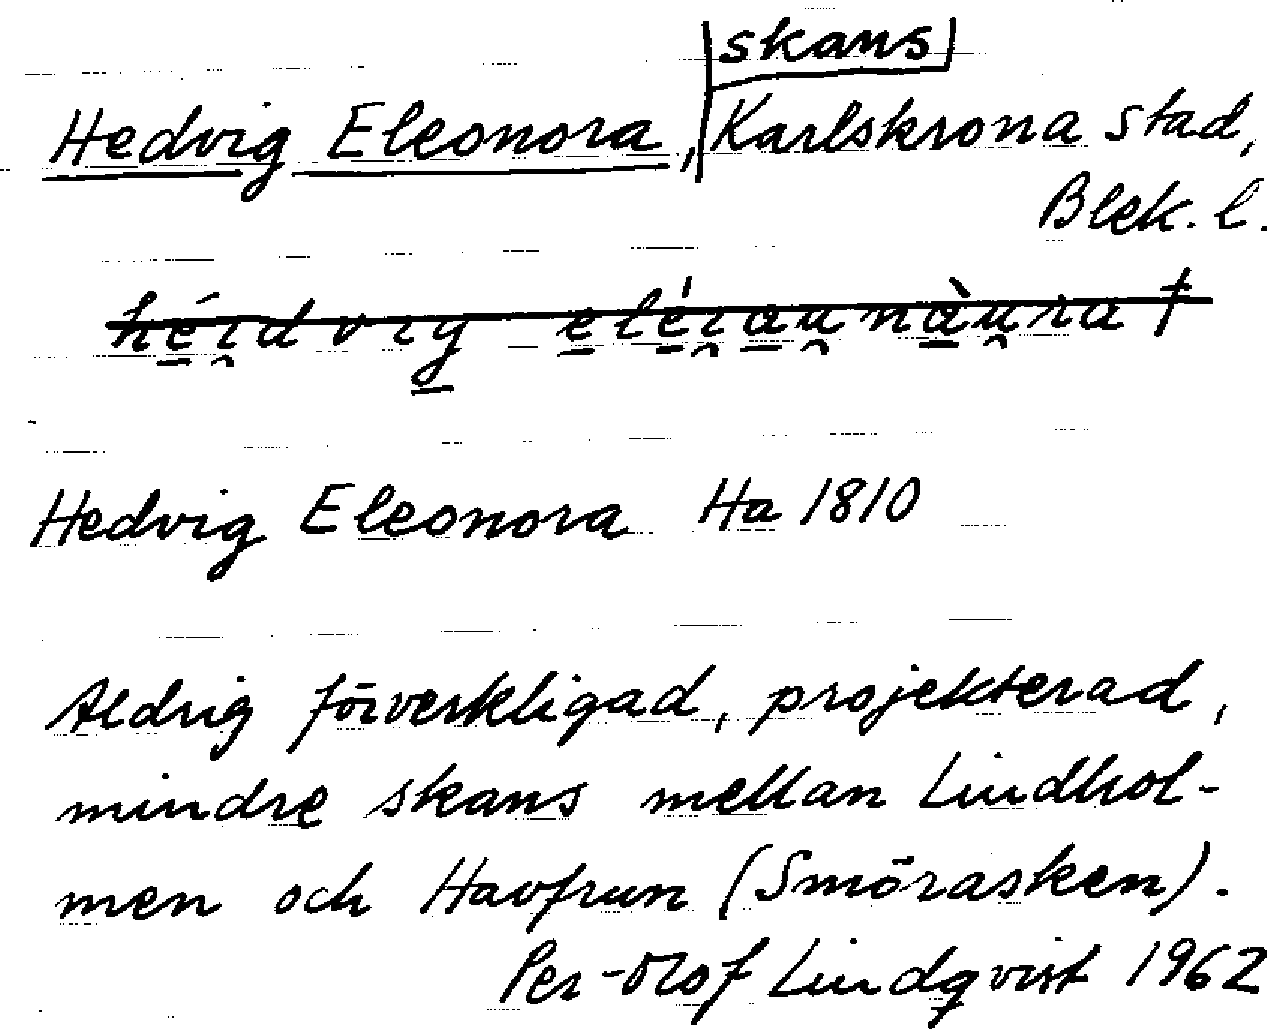 skans
Hedvig Eleonora, Karlskrona stad,
Blek. l.
Hedvig Eleonora Ha 1810
Aldrig förverkligad, projekterad,
mindre skans mellan Lindhol-
men och Havfrun (Smörasken).
Per-Olof Lindqvist 1962